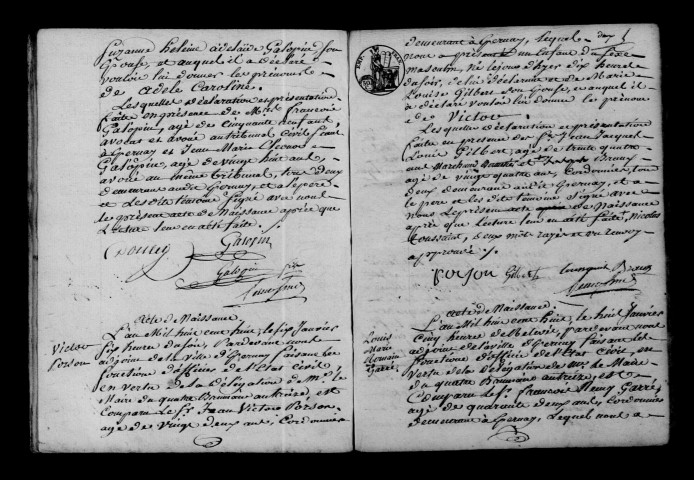 Suzanne helène adelaïde Galopin son
Epouse, et auquel il a déclaré
vouloir lui donner les prénoms
de adèle Caroline.
Lesquelles déclaration et présentation
faite en présence de françois
Galopin, agé de cinquante neuf ans,
avocat et avoué au tribunal Civil séant
à Epernay et Jean Marie
Galopin, agé de vingt huit ans,
avoué au même tribunal, tous deux
demeurant audit Epernay, et a le pere
et les dits témoins signé avec nous
le présent acte de Naissance après que
Lecture leur en a été faite ./.
Galopin
Galopin
Victor
Porson
Acte de Naissance.
L'an Mil huit cent huit, le six Janvier
heure du soir, Pardevant nous
adjoint de la ville d'Epernay faisant les
fonctions d'officier de l'Etat Civil
en vertu de la Délégation de Mr. le
Maire du quatre Brumaire an treize, est
Comparu le Sr. Jean Victor Porson,
agé de vingt deux ans, Cordonnier
demeurant à Epernay, lequel
nous a présenté un Enfant du sexe
masculin, né le jour d'hyer dix heures
du soir, de lui déclarant et de Marie
Louise Gilbert son Epouse, et auquel il
a déclaré vouloir lui donner le prénom
de Victor.
Lesquelles déclaration et présentation
faite en présence des Sr. Jean Jacques
Louis Gilbert, agé de trente quatre
ans Marchand
agé de vingt quatre ans, Cordonnier, tous
deux demeurant audit Epernay, et a
le pere et les dits témoins signé avec
nous le présent acte de Naissance
après que Lecture leur en a été faite, Nicolas
Toussaint, deux mots rayés et un renvoy
approuvé ./.
porson Gilbert
Louis
Marie
Germain
Garré.
Acte de Naissance.
L'an Mil huit cent huit, le huit Janvier
Cinq heures de relevée, pardevant nous
adjoint de la ville d'Epernay faisant les
fonctions d'officier de l'Etat Civil, en
vertu de la Délégation de Mr. le Maire
du quatre Brumaire an treize, est
Comparu le Sr. françois Remy Garré,
agé de quarante deux ans, Cordonnier
demeurant à Epernay, Lequel nous a